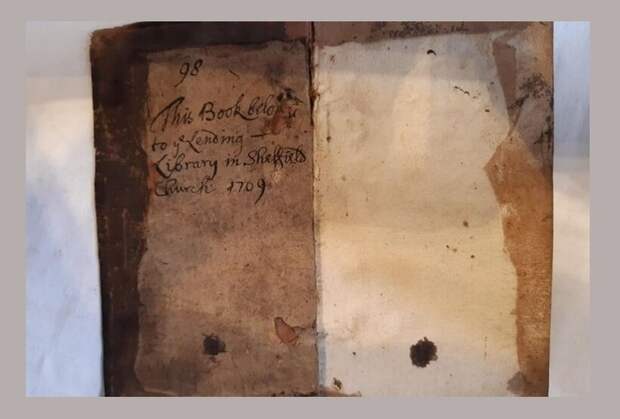 98
This Book belongs
to ye Lending
Library in Sheffield
Church 1709